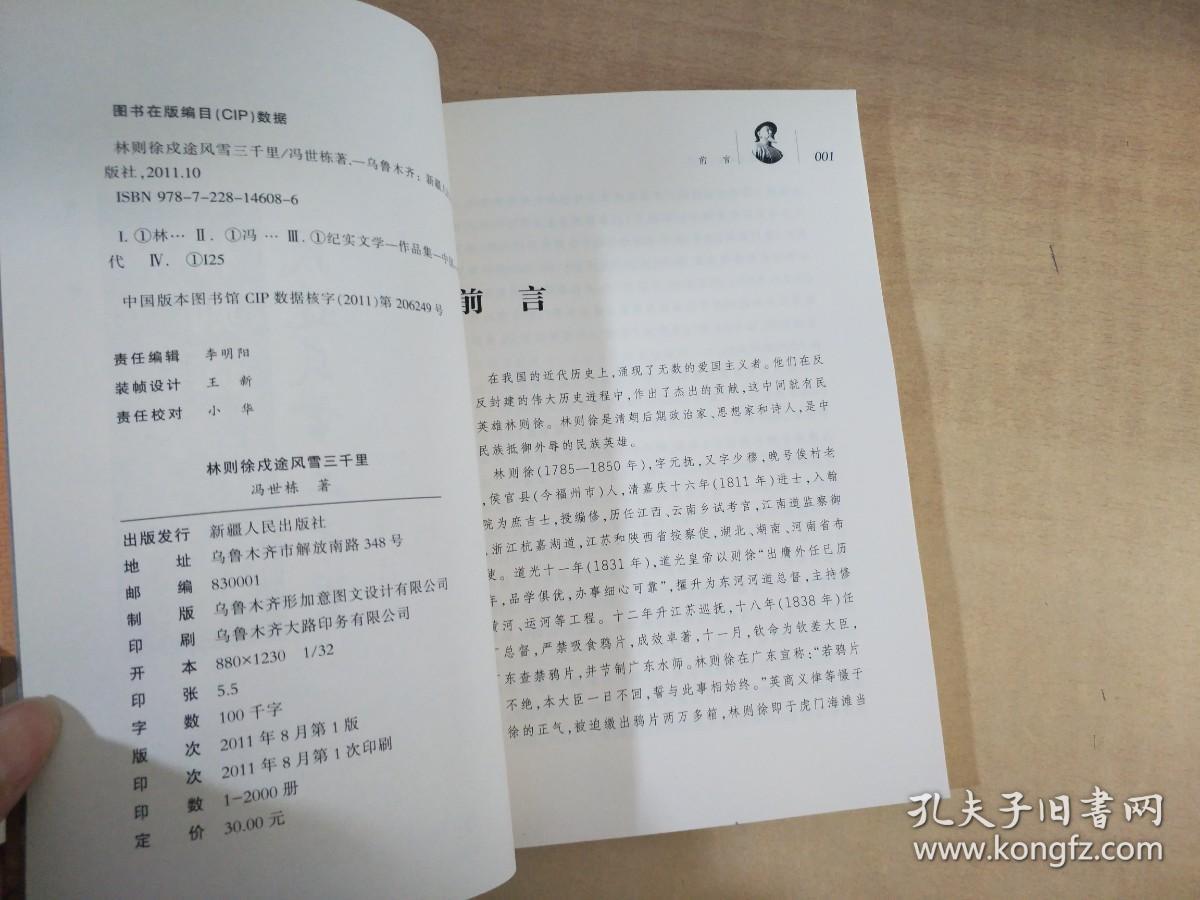 图书在版编目(CIP)数据
林则徐戍途风雪三千里/冯世栋著.—乌鲁木齐:新疆人
版社,2011.10
ISBN 978-7-228-14608-6
Ⅰ.①林… Ⅱ.①冯… Ⅲ.①纪实文学—作品集—中国—
代 Ⅳ.①I25
中国版本图书馆CIP数据核字(2011)第206249号
责任编辑 李明阳
装帧设计 王 新
责任校对 小 华
林则徐戍途风雪三千里
冯世栋 著
出版发行 新疆人民出版社
地 址 乌鲁木齐市解放南路348号
邮 编 830001
制 版 乌鲁木齐形加意图文设计有限公司
印 刷 乌鲁木齐大路印务有限公司
开 本 880×1230 1/32
印 张 5.5
字 数 100千字
版 次 2011年8月第1版
印 次 2011年8月第1次印刷
印 数 1-2000册
定 价 30.00元
前 言 001
前 言
在我国的近代历史上,涌现了无数的爱国主义者。他们在反
反封建的伟大历史进程中,作出了杰出的贡献,这中间就有民
英雄林则徐。林则徐是清朝后期政治家、思想家和诗人,是中
民族抵御外辱的民族英雄。
林则徐(1785—1850年),字元抚,又字少穆,晚号俟村老
,侯官县(今福州市)人,清嘉庆十六年(1811年)进士,入翰
院为庶吉士,授编修,历任江西、云南乡试考官,江南道监察御
,浙江杭嘉湖道,江苏和陕西省按察使,湖北、湖南、河南省布
使。道光十一年(1831年),道光皇帝以则徐“出膺外任已历
年,品学俱优,办事细心可靠”,擢升为东河河道总督,主持修
黄河、运河等工程。十二年升江苏巡抚,十八年(1838年)任
广总督,严禁吸食鸦片,成效卓著,十一月,钦命为钦差大臣,
广东查禁鸦片,并节制广东水师。林则徐在广东宣称:“若鸦片
不绝,本大臣一日不回,誓与此事相始终。”英商义律等慑于
徐的正气,被迫缴出鸦片两万多箱,林则徐即于虎门海滩当
孔夫子旧书网
www.kongfz.com